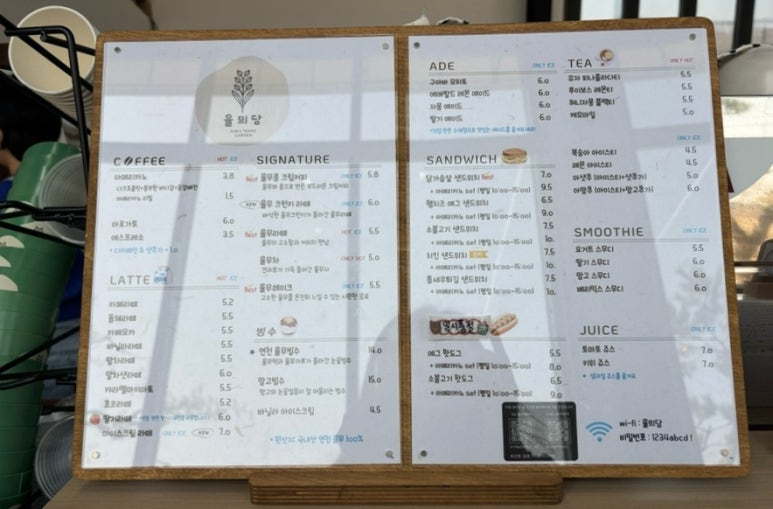 율의당
COFFEE HOT ICE
아메리카노 3.8
아메리카노 리필 1.5
아포가토 6.0
에스프레소 3.5
• 디카페인 & 샷추가 +
LATTE HOT ICE
카페라떼 5.2
돌체라떼 5.5
카페모카 5.5
바닐라라떼 5.5
말차라떼 5.5
말차샷라떼 6.0
카라멜마끼아또 5.5
초코라떼 5.2
딸기라떼 6.0
아이스크림 라떼 ONLY ICE NEW 7.0
SIGNATURE HOT ICE
Best 율무롱 크림커피 5.8
NEW 율무 크런키 라떼 6.0
바삭한 율무크런키가 올라간 율무라떼
Best 율무라떼 HOT ICE 5.5
율무의 고소함과 커피의 만남
율무차 ONLY HOT 5.0
견과류가 가득 들어간 율무차
Best 율무쉐이크 ONLY ICE 6.5
고소한 율무를 온전히 느낄 수 있는
빙수
연천 율무빙수 14.0
망고빙수 15.0
바닐라 아이스크림 4.5
* 원산지: 국내산 연천 율무 100%
ADE ONLY ICE
6.0
에메랄드 레몬 에이드 6.0
자몽 에이드 6.0
딸기 에이드 6.0
SANDWICH
닭가슴살 샌드위치 Best 7.0
+ 아메리카노 set (평일 10:00-15:00) 9.5
햄치즈 에그 샌드위치 6.5
+ 아메리카노 set (평일 10:00-15:00) 9.0
소불고기 샌드위치 7.5
+ 아메리카노 set (평일 10:00-15:00) 10.
치킨 샌드위치 7.5
+ 아메리카노 set (평일 10:00-15:00) 10.
통새우튀김 샌드위치 7.5
+ 아메리카노 set (평일 10:00-15:00) 10.
에그 핫도그 5.5
+ 아메리카노 set (평일 10:00-15:00) 8.0
소불고기 핫도그 6.5
+ 아메리카노 set (평일 10:00-15:00) 9.0
TEA ONLY HOT
유자 피나콜라다티 5.5
루이보스 레몬티 5.5
허니자몽 블랙티 5.5
캐모마일 5.0
ONLY ICE
복숭아 아이스티 4.5
레몬 아이스티 4.5
아샷추 (아이스티+샷추가) 5.0
아망추 (아이스티+망고추가) 6.0
SMOOTHIE ONLY ICE
요거트 스무디 5.5
딸기 스무디 6.0
망고 스무디 6.0
베리믹스 스무디 6.0
JUICE ONLY ICE
토마토 쥬스 7.0
키위 쥬스 7.0
* 생과일 쥬스를 즐겨요
wi-fi : 율의당
비밀번호 : 1234abcd!